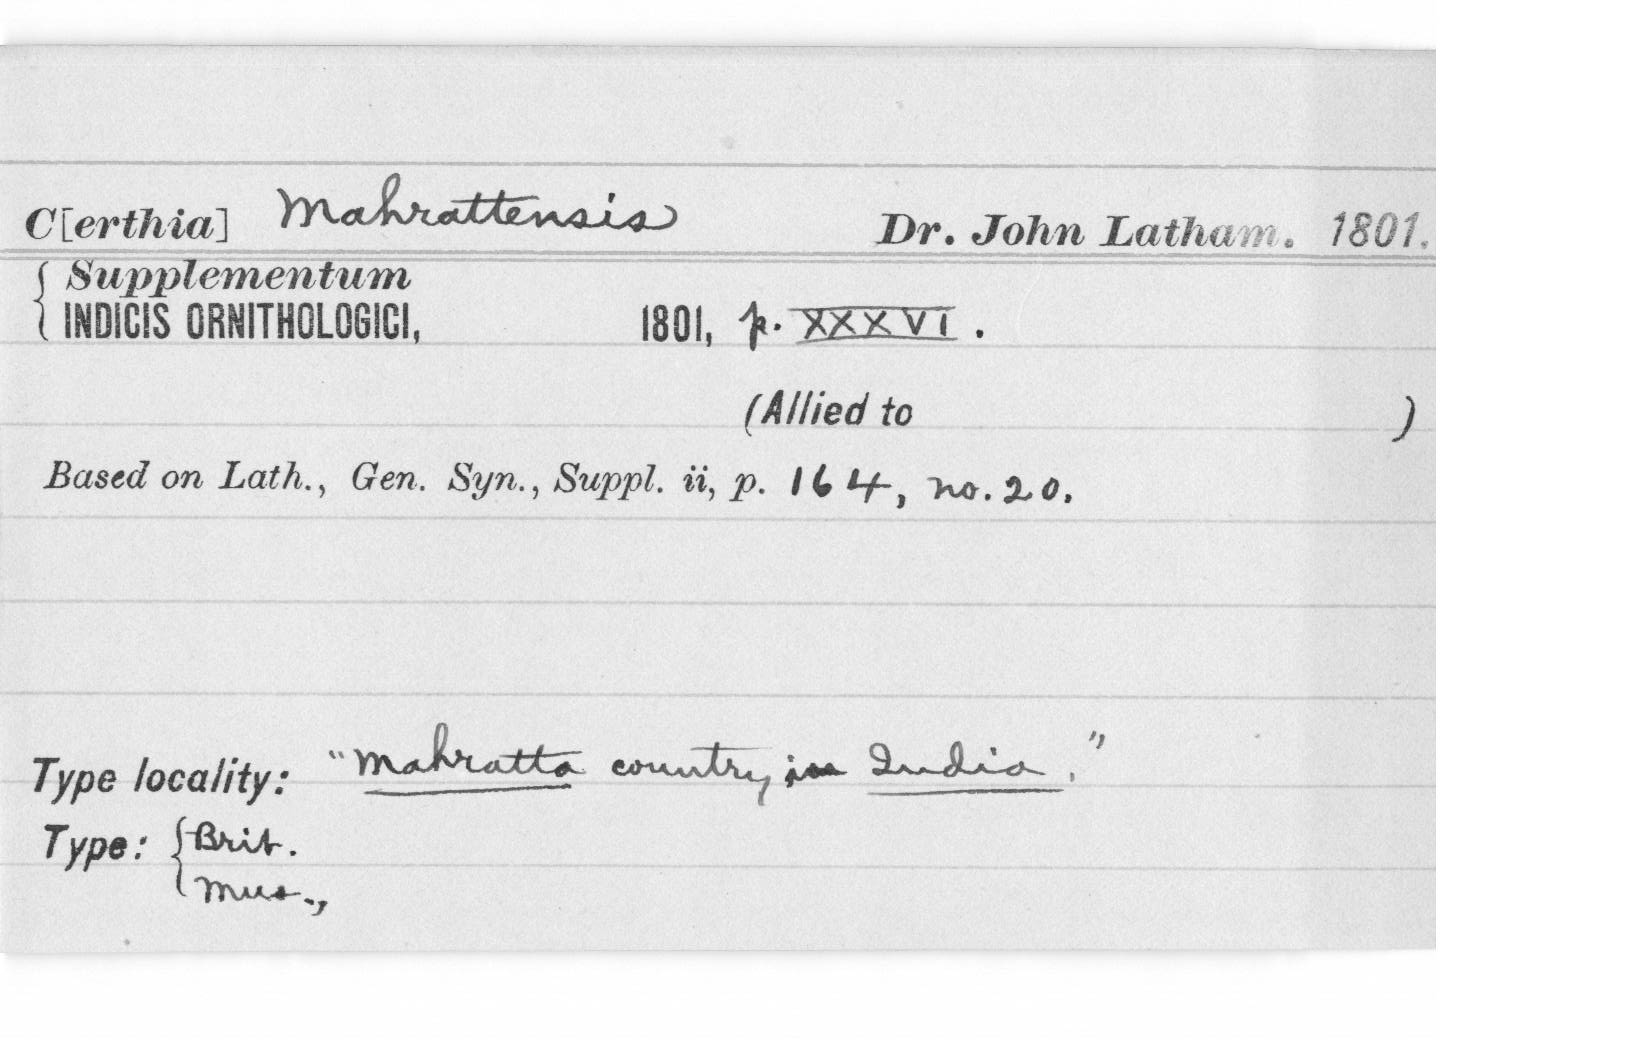 C[erthia] Mahrattensis Dr. John Latham. 1801.
Supplementum
INDICIS ORNITHOLOGICI, 1801, p. XXXVI.
(Allied to )
Based on Lath., Gen. Syn., Suppl. ii, p. 164, no. 20.
Type locality: "Mahratta country in India."
Type: Brit.
Mus.,